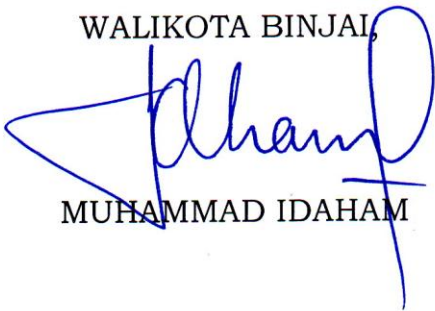 WALIKOTA BINJAI,
Idaham
MUHAMMAD IDAHAM